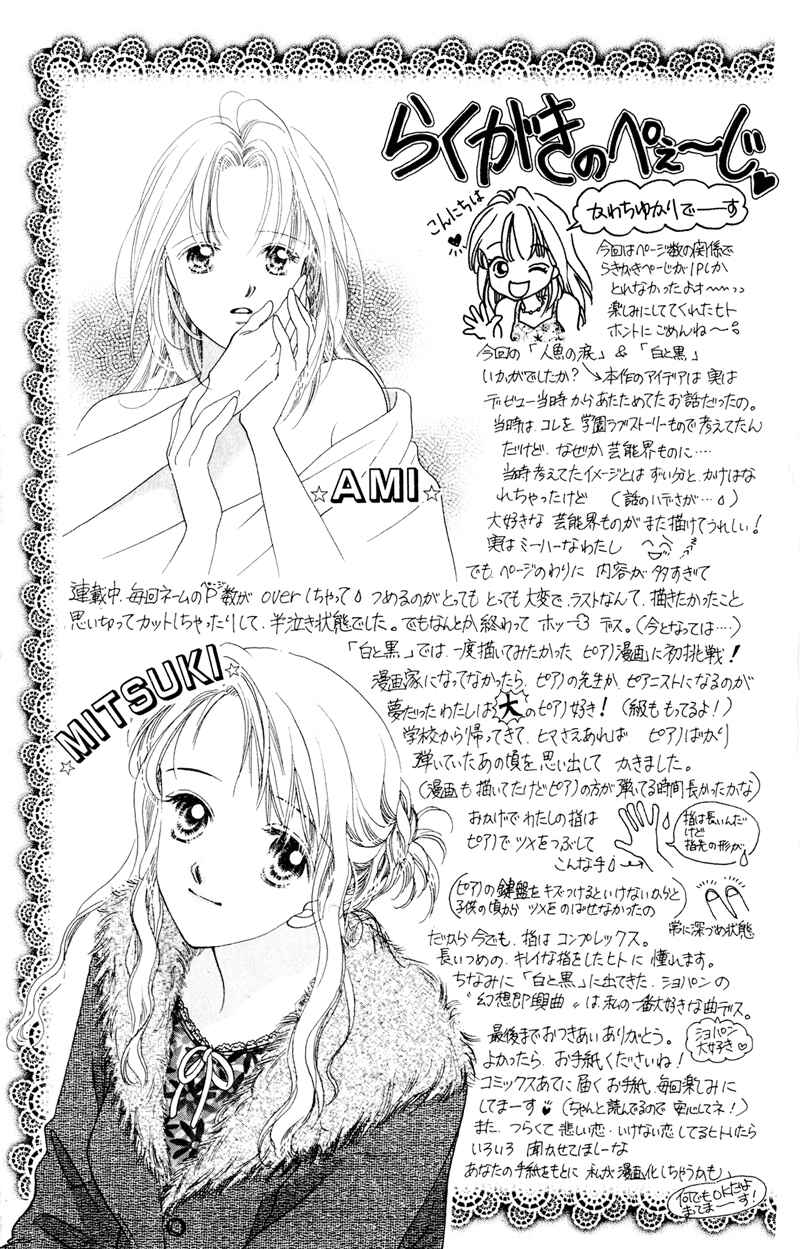 らくがきのぺぇ〜じ♥
こんにちは
♥
なわちゆかりでーーす
今回はページ数の関係で
らきがきぺーじが1Pしか
とれなかったよォ〜〜っっ
楽しみにしててくれたヒト
ホントにごめんね〜。
今回の「人魚の涙」&「白と黒」
いかがでしたか?→本作のアイデアは実は
デビュー当時からあたためてたお話だったの。
当時は、コレを学園ラブストーリーもので考えてたん
だけど、なぜか芸能界ものに‥‥
当時考えてたイメージとはずい分と、かけはな
れちゃったけど (話のハデさが‥‥)
大好きな芸能界ものがまた描けてうれしい!
実はミーハーなわたし
☆AMI☆
でも、ページのわりに内容が多すぎて
連載中、毎回ネームのP数がoverしちゃって つめるのがとってもとっても大変で、ラストなんて、描きたかったこと
ページ
思い切ってカットしちゃったりして、半泣き状態でした。でもなんとか終わってホッ デス。(今となっては‥‥)
☆MITSUKI☆
「白と黒」では、一度描いてみたかったピアノ漫画に初挑戦!
漫画家になってなかったら、ピアノの先生か、ピアニストになるのが
夢だったわたしは大のピアノ好き! (級ももってるよ!)
学校から帰ってきて、ヒマさえあれば ピアノばかり
弾いていたあの頃を思い出して かきました。
(漫画も描いてたけどピアノの方が弾いてる時間長かったかな)
おかげでわたしの指は
ピアノでツメをつぶして
こんな手
指は長いんだ
けど
指先の形が
(ピアノの鍵盤をキズつけるといけないからと
子供の頃からツメをのばせなかったの)
常に深づめ状態
だから今でも、指はコンプレックス。
長いつめの、キレイな指をしたヒトに憧れます。
ちなみに「白と黒」に出てきた、ショパンの
“幻想即興曲”は、私の一番大好きな曲デス。
ショパン
大好き♡
最後までおつきあいありがとう。
よかったら、お手紙くださいね!
コミックスあてに届くお手紙、毎回楽しみに
してまーす♥ (ちゃんと読んでるので安心してネ!)
また、つらくて悲しい恋・いけない恋してるヒトいたら
いろいろ聞かせてほしーな
あなたの手紙をもとに私が漫画化しちゃうかも、
何でもOKだよ
まってまーーす!